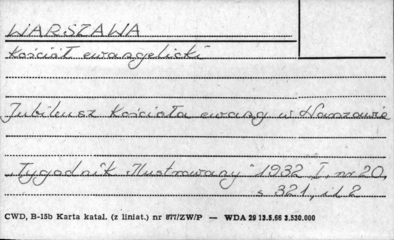 WARSZAWA
Kościół ewangelicki
Jubileusz Kościoła ewang w Warszawie
"Tygodnik Ilustrowany" 1932 I, nr 20,
s 321, il. 2
CWD, B-15b Karta katal. (z liniat.) nr 877/ZW/P — WDA 29 13.5.66 3.530.000